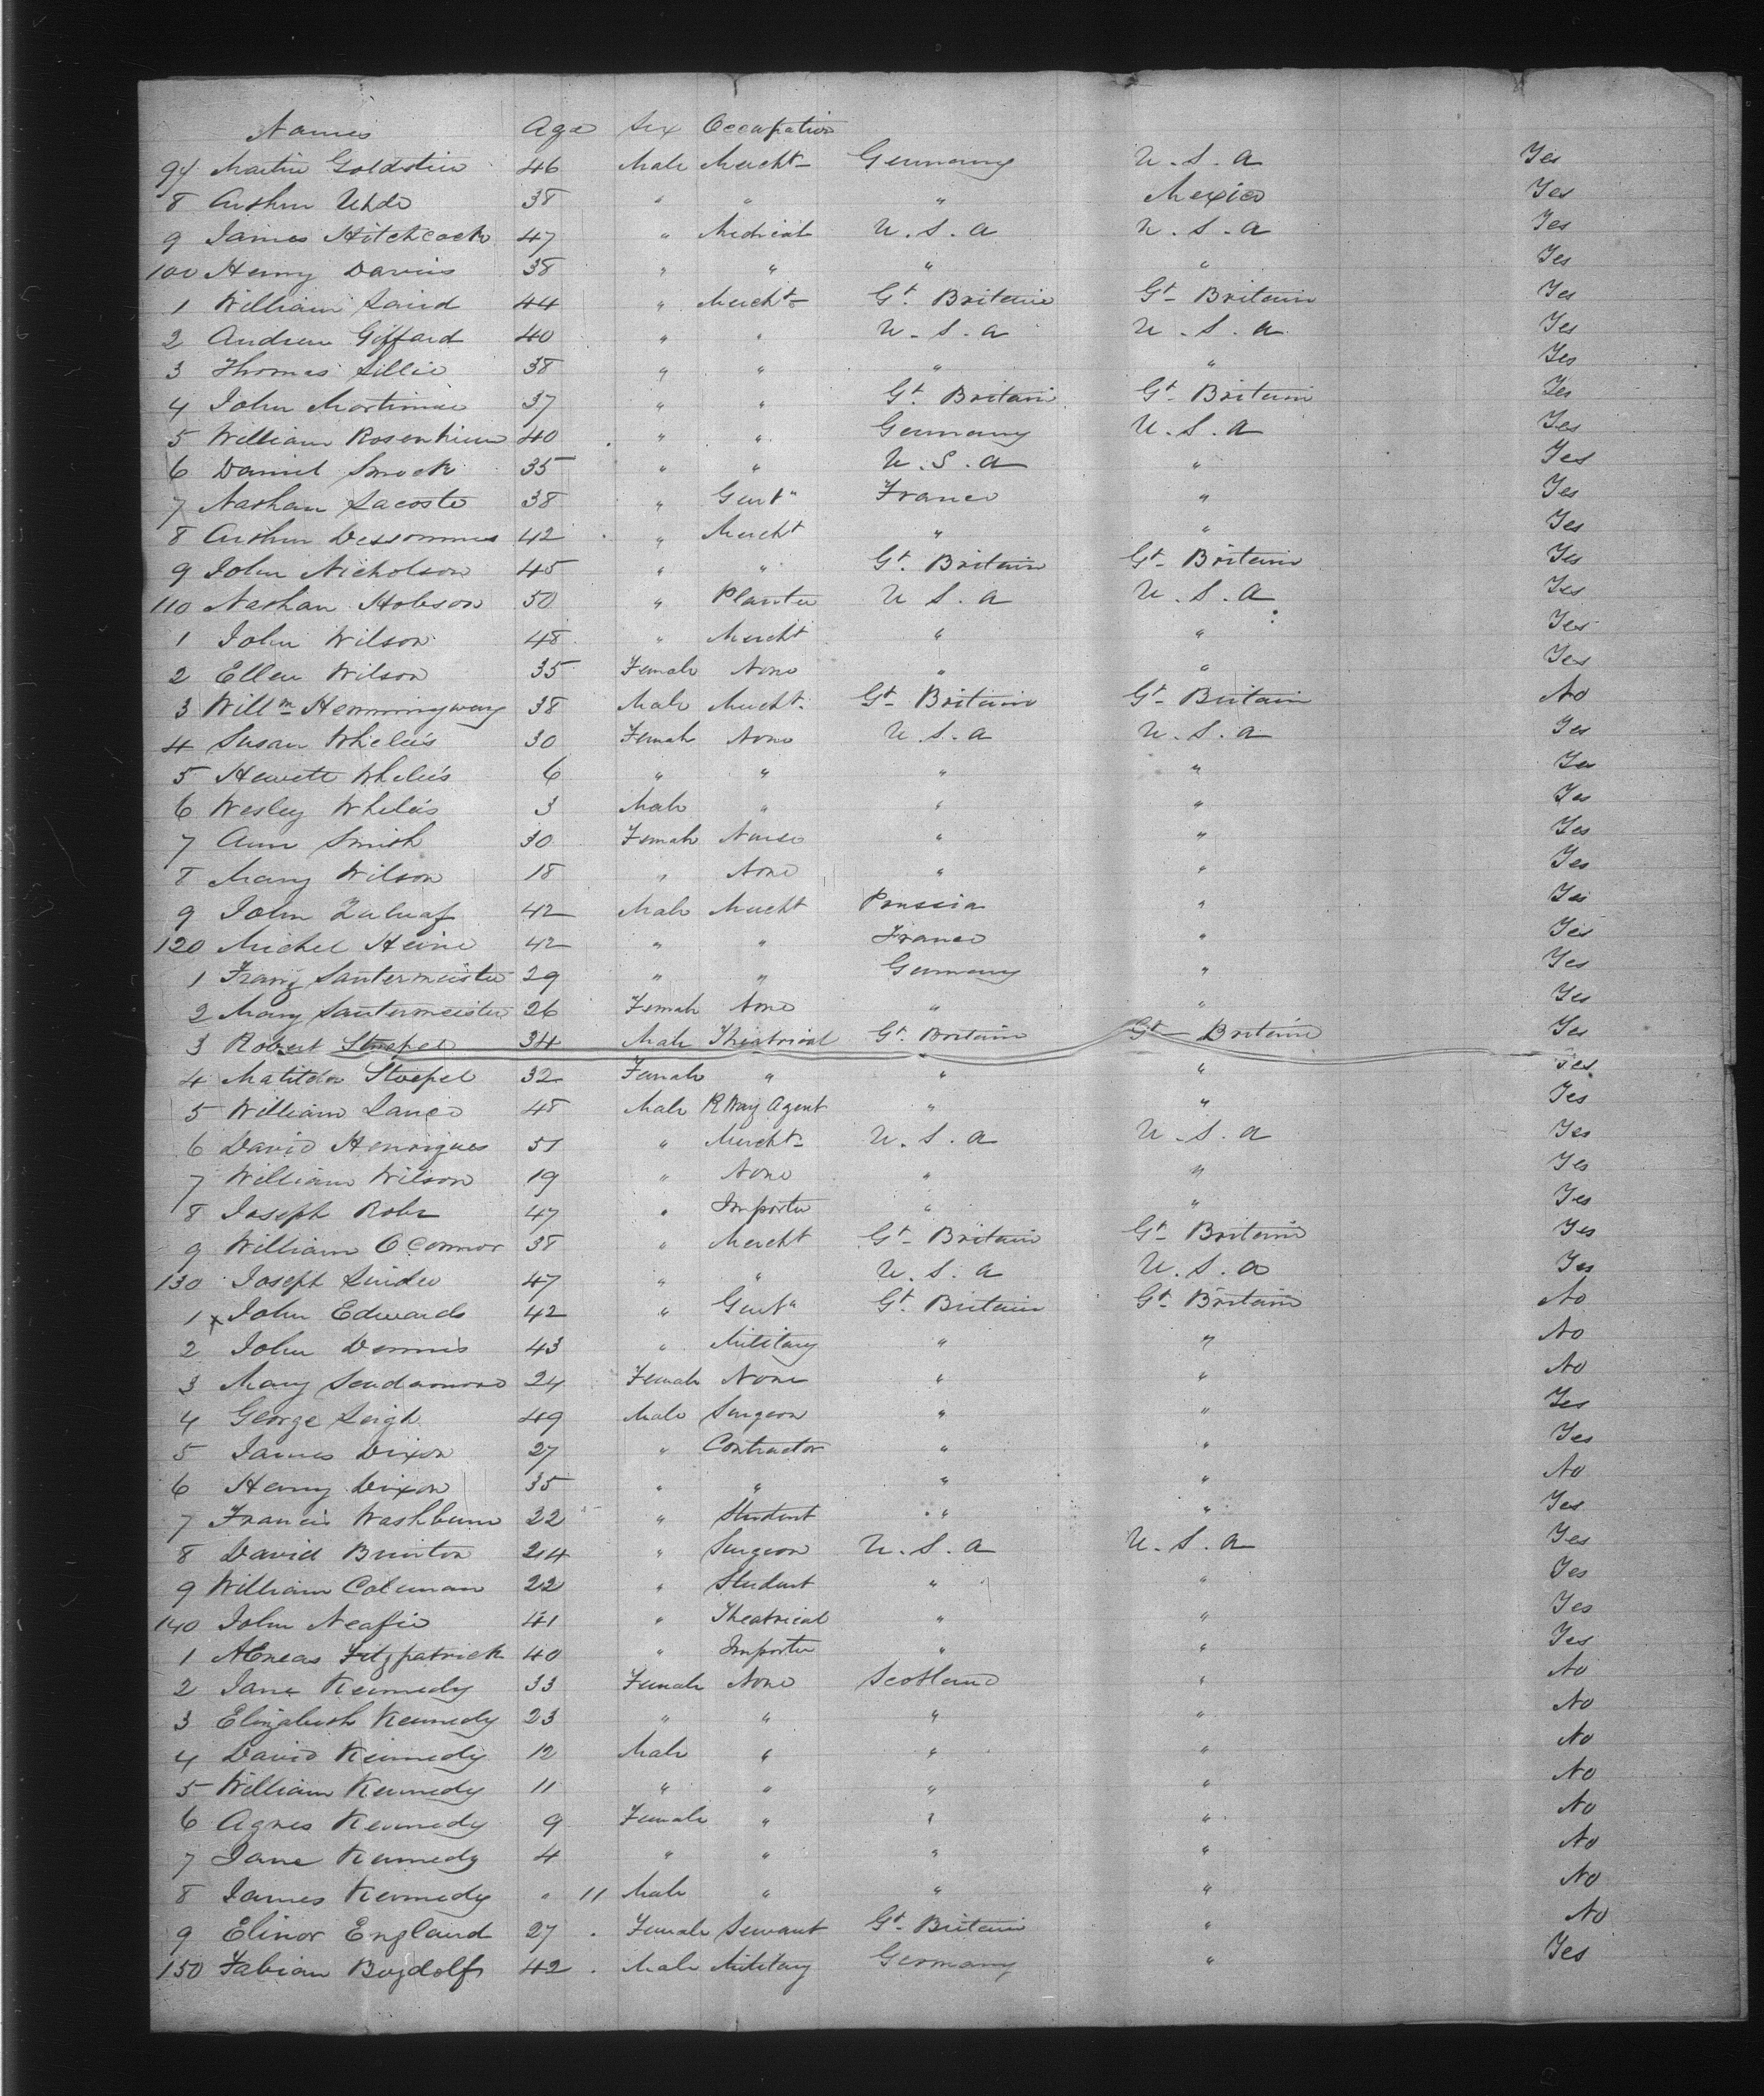 Names Age Sex Occupation
97 Martin Goldstein 46 Male Mercht Germany U.S.A Yes
8 Arthur Uhde 38 " " " Mexico Yes
9 James Hitchcock 47 " Medical U.S.A U.S.A Yes
100 Henry Davies 38 " " " " Yes
1 William Laird 44 " Mercht Gt. Britain Gt. Britain Yes
2 Andrew Giffard 40 " " U.S.A U.S.A Yes
3 Thomas Lillie 38 " " " " Yes
4 John Mortimer 37 " " Gt. Britain Gt. Britain Yes
5 William Rosenheim 40 " " Germany U.S.A Yes
6 Daniel Smock 35 " " U.S.A " Yes
7 Nathan Lacoste 38 " Gent" France " Yes
8 Arthur Dessommes 42 " Mercht " " Yes
9 John Nicholson 45 " " Gt. Britain Gt. Britain Yes
110 Nathan Hobson 50 " Planter U S. A U.S.A Yes
1 John Wilson 48 " Mercht " " Yes
2 Ellen Wilson 35 Female None " " Yes
3 Willm Hemmingway 38 Male Mercht. Gt. Britain Gt. Britain No
4 Susan Wheleis 30 Female None U.S.A U.S.A Yes
5 Hewett Wheleis 6 " " " " Yes
6 Wesley Wheleis 3 Male " " " Yes
7 Ann Smith 30 Female Nurse " " Yes
8 Mary Wilson 18 " None " " Yes
9 John 42 Male Mercht Prussia " Yes
120 Michel Heine 42 " " France " Yes
1 Franz Santermeister 29 " " Germany " Yes
2 Mary Santermeister 26 Female None " " Yes
3 Robert Stoepel 34 Male Theatrical Gt. Britain Gt. Britain Yes
4 Matilda Stoepel 32 Female " " " Yes
5 William Lance 48 Male R Way Agent " " Yes
6 David Henriques 51 " Mercht U.S.A U.S.A Yes
7 William Wilson 19 " None " " Yes
8 Joseph Rohr 47 " Importer " " Yes
9 William OConnor 38 " Mercht Gt. Britain Gt. Britain Yes
130 Joseph 47 " " U.S.A U.S.A Yes
1 x John Edwards 42 " Gent" Gt. Britain Gt. Britain No
2 John Dennis 43 " Military " " No
3 Mary Scudamore 24 Female None " " No
4 George Leigh 49 Male Surgeon " " Yes
5 James Dixon 27 " Contractor " " Yes
6 Henry Dixon 35 " " " " No
7 Francis Washburn 22 " Student " " Yes
8 David Brinton 24 " Surgeon U.S.A U.S.A Yes
9 William Coleman 22 " Student " " Yes
140 John Neafie 41 " Theatrical " " Yes
1 AEneas Fitzpatrick 40 " Importer " " Yes
2 Jane Kennedy 33 Female None Scotland " No
3 Elizabeth Kennedy 23 " " " " No
4 David Kennedy 12 Male " " " No
5 William Kennedy 11 " " " " No
6 Agnes Kennedy 9 Female " " " No
7 Jane Kennedy 4 " " " " No
8 James Kennedy " 11 Male " " " No
9 Elinor England 27 Female Servant Gt. Britain " No
150 Fabian Bugdolf 42 Male Military Germany " Yes